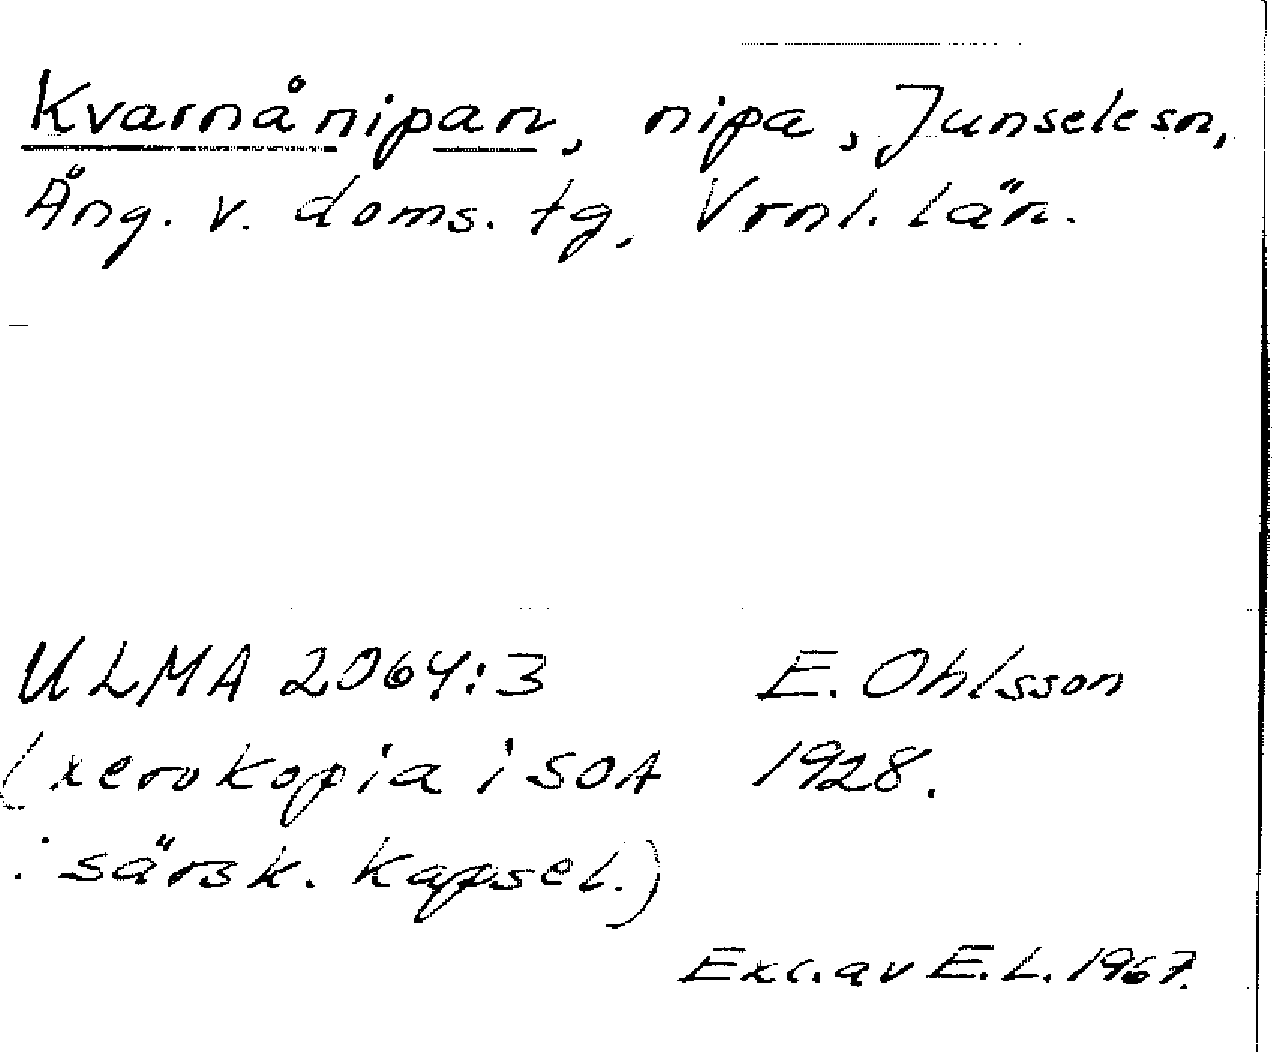 Kvarnånipan, nipa, Junsele sn,
Ång. v. doms. tg, Vrnl. län.
ULMA 2064:3 E. Ohlsson
(xerokopia i SOA 1928.
i särsk. kapsel.)
Exc. av E. L. 1967.